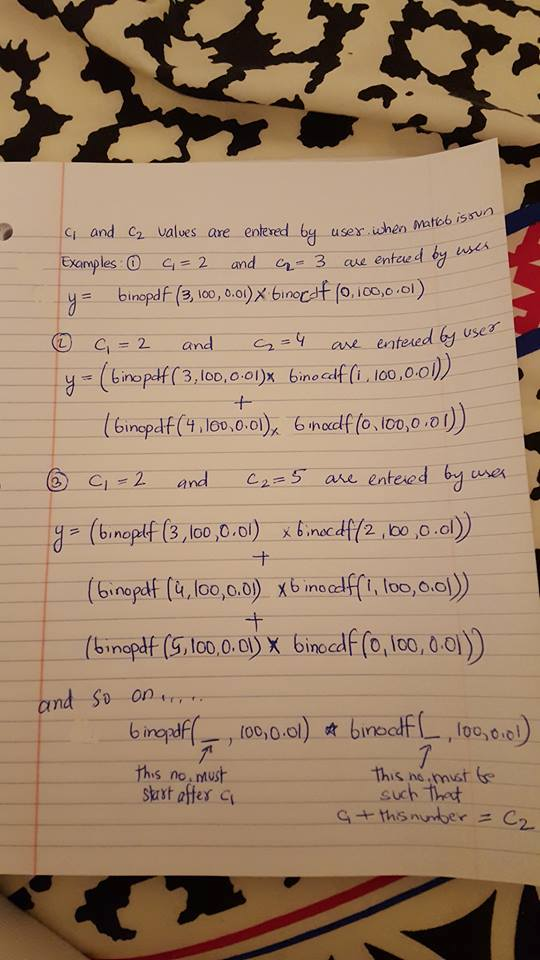 C1 and C2 values are entered by user when Matlab is run
Examples: ① C1 = 2 and C2 = 3 are entered by user
y = binopdf(3,100,0.01) × binocdf(0,100,0.01)
② C1 = 2 and C2 = 4 are entered by user
y = (binopdf(3,100,0.01) × binocdf(1,100,0.01))
+
(binopdf(4,100,0.01) × binocdf(0,100,0.01))
③ C1 = 2 and C2 = 5 are entered by user
y = (binopdf(3,100,0.01) × binocdf(2,100,0.01))
+
(binopdf(4,100,0.01) × binocdf(1,100,0.01))
+
(binopdf(5,100,0.01) × binocdf(0,100,0.01))
and so on.....
binopdf(_, 100,0.01) * binocdf(_, 100,0.01)
this no. must this no. must be
start after C1 such that
C1 + this number = C2